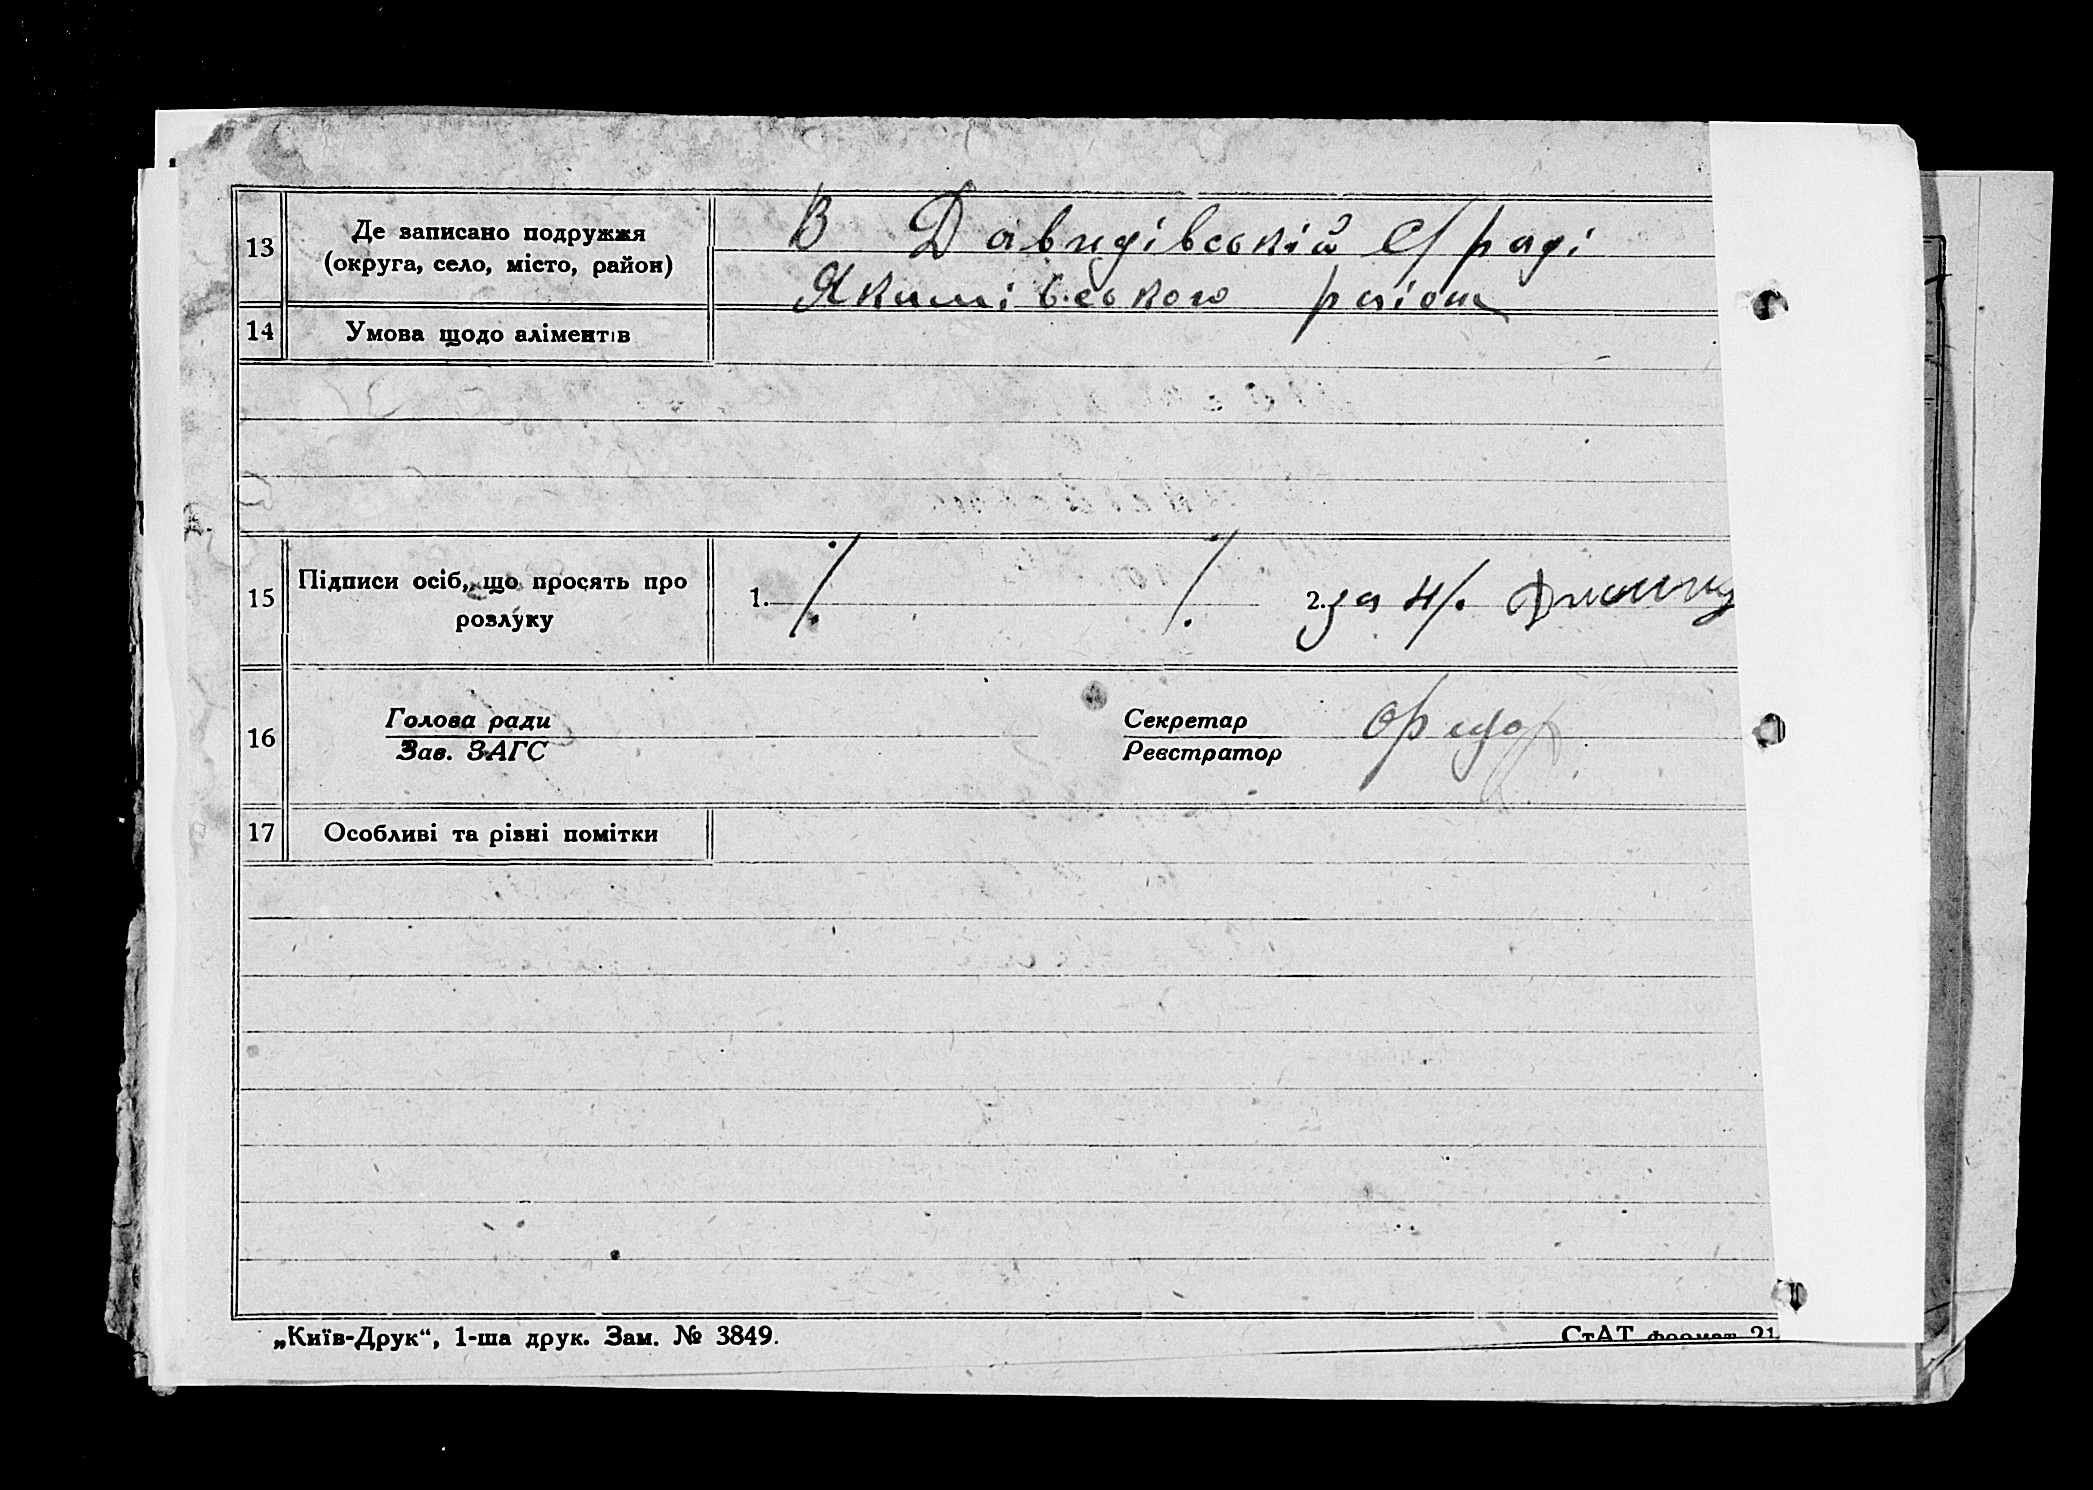 13 Де записано подружжя
(округа, село, місто, район)
В Давидівській с/раді
Якимівського району
14 Умова щодо аліментів
15 Підписи осіб, що просять про
розлуку
1. 2. за н/.
16 Голова ради
Зав. ЗАГС
Секретар
Реєстратор
17 Особливі та різні помітки
„Київ-Друк“, 1-ша друк. Зам. № 3849.
СтАТ формат 21